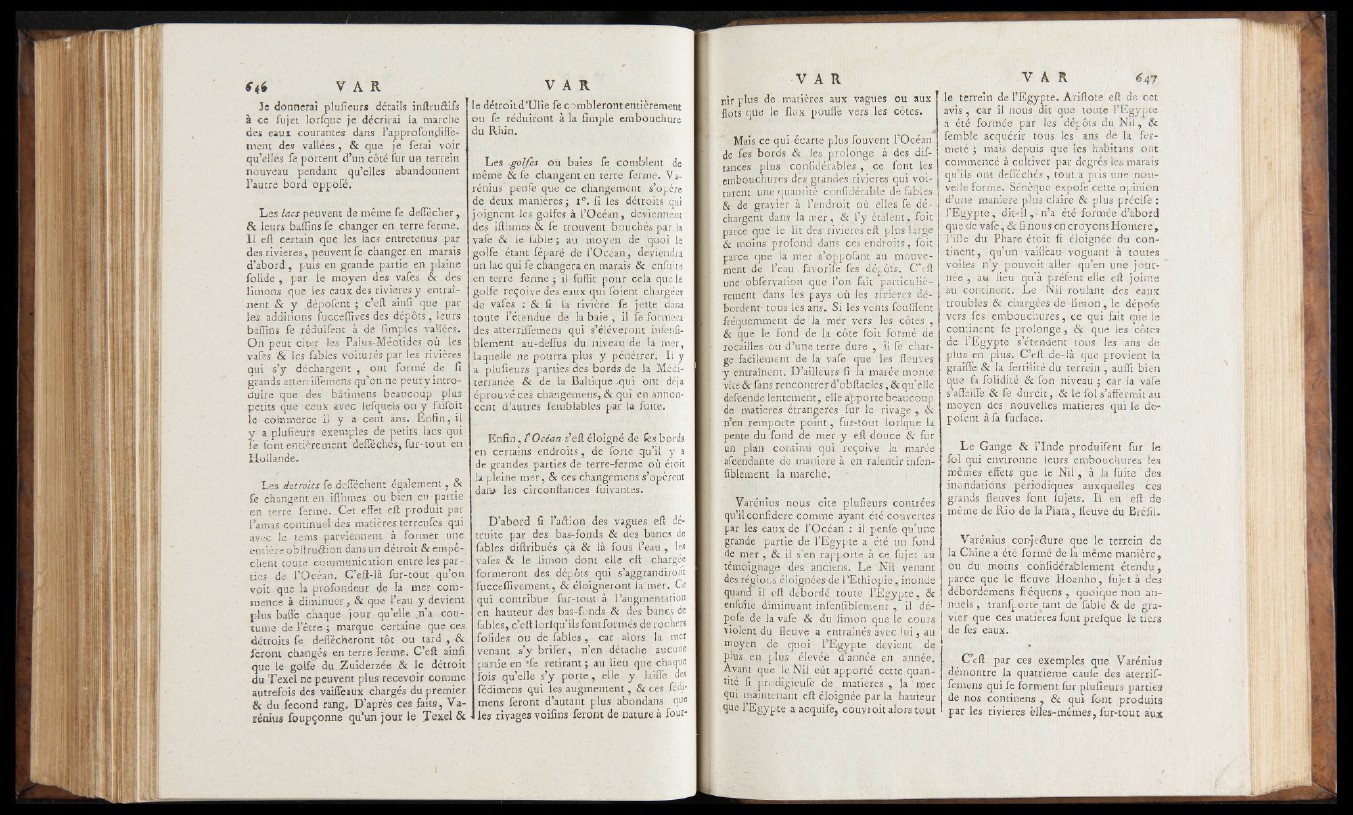 646 VAR
Je donnerai plusieurs détails instructifs
à ce sujet lorsque je décrirai la marche
des eaux courantes dans l'approfondisse-
ment des vallées, & que je ferai voir
qu'elles se portent d'un côté sur un terrein
nouveau pendant qu'elles abandonnent
l'autre bord opposé.
Les lacs peuvent de même se dessécher,
& leurs bassins se changer en terre ferme.
Il est certain que les lacs entretenus par
des rivières, peuvent se changer en marais
d'abord, puis en grande partie en plaine
solide, par le moyen des vases & des
limons que les eaux des rivieres y entraî-
nent & y déposent ; c'est ainsi que par
les additions successives des dépôts, leurs
bassins se réduisent à de simples vallées.
On peut citer les Palus-Méotides où les
vases & les sables voiturés par les rivières
qui s'y déchargent , ont formé de si
grands atterrissemens qu'on ne peut y intro-
duire que des bâtimens beaucoup plus
petits que ceux avec lesquels on y faisoit
le commerce il y a cent ans. Enfin, il
y a plusieurs exemples de petits lacs qui
se sont entièrement desséchés, sur-tout en
Hollande.
Les détroits se dessèchent également, &
se changent en isthmes ou bien en partie
en terre ferme. Cet effet est produit par
l'amas continuel des matières terreuses qui
avec le tems parviennent à former une
entière obstruction dans un détroit & empê-
chent toute communication entre les par-
ties de l'Océan. C'est-là sur-tout qu'on
voit que la profondeur de la mer com-
mence à diminuer, & que l'eau y devient
plus basse chaque jour qu'elle n'a cou-
tume de l'être ; marque certaine que ces
détroits se dessécheront tôt ou tard , &
seront changés en terre ferme. C'est ainsi
que le golfe du Zuiderzée & le détroit
du Texel ne peuvent plus recevoir comme
autrefois des vaisseaux chargés du premier
& du second rang. D'après ces faits, Va-
rénius soupçonne qu'un jour le Texel &
VAR
le détroit d'Ulie se combleront entièrement
ou se réduiront à la simple embouchure
du Rhin.
Les golfes ou baies se comblent de
même & se changent en terre ferme. Va-
rénius pense que ce changement s'opère
de deux manières ; 1°. si les détroits qui
joignent les golfes à l'Océan, deviennent
des isthmes & se trouvent bouchés par la
vase & le sable ; au moyen de quoi le
golfe étant séparé de l'Océan, deviendra
un lac qui se changera en marais & ensuite
en terre ferme ; il suffit pour cela que le
golfe reçoive des eaux qui soient chargées
de vases : & si la rivière se jette dans
toute l'étendue de la baie , il se formera
des atterrissemens qui s'éléveront insensi-
blement au-dessus du niveau de la mer,
laquelle ne pourra plus y pénétrer. Il y
a plusieurs parties des bords de la Médi-
terranée & de la Baltique qui ont déja
éprouvé ces changemens, & qui en annon-
cent d'autres semblables par la suite.
Enfin, l'Océan s'est éloigné de ses bords
en certains endroits, de sorte qu'il y a
de grandes parties de terre-ferme où étoit
la pleine mer, & ces changemens s'opèrent
dans les circonstances suivantes.
D'abord si l'action des vagues est dé-
truite par des bas-fonds & des bancs de
sables distribués çà & là sous l'eau, les
vases & le limon dont elle est chargée
formeront des dépôts qui s'aggrandiront
successivement, & éloigneront la mer. Ce
qui contribue sur-tout à l'augmentation
en hauteur des bas-fonds & des bancs de
sables, c'est lorsqu'ils sont formés de rochers
solides ou de sables, car alors la mer
venant s'y briser, n'en détache aucune
partie en se retirant ; au lieu que chaque
fois qu'elle s'y porte, elle y laisse des
sédimens qui les augmentent, & ces sédi-
mens seront d'autant plus abondans que
les rivages voisins seront de nature à four-
VAR
nir plus de matières aux vagues ou aux
flots que le flux pousse vers les côtes.
Mais ce qui écarte plus souvent l'Océan
de ses bords & les prolonge à des dis-
tances plus considérables , ce sont les
embouchures des grandes rivieres qui voi-
turent une quantité considérable de sables
& de gravier à l'endroit où elles se dé-
chargent dans la mer, & l'y étalent, soit
parce que le lit des rivieres est plus large
& moins profond dans ces endroits, soit
parce que la mer s'opposant au mouve-
ment de l'eau favorise ses dépôts. C'est
une observation que l'on fait particuliè-
rement dans les pays où les rivieres dé-
bordent tous les ans. Si les vents soufflent
fréquemment de la mer vers les côtes ,
& que le fond de la côte soit formé de
rocailles ou d'une terre dure , il se char-
ge facilement de la vase que les fleuves
y entraînent. D'ailleurs si la marée monte
vîte & sans rencontrer d'obstacles, & qu'elle
descende lentement, elle apporte beaucoup
de matieres étrangeres sur le rivage , &
n'en remporte point, sur-tout lorsque la
pente du fond de mer y est douce & sur
un plan continu qui reçoive la marée
ascendante de maniere à en ralentir insen-
siblement la marche.
Varénius nous cite plusieurs contrées
qu'il considere comme ayant été couvertes
par les eaux de l'Océan : il pense qu'une
grande partie de l'Egypte a été un fond
de mer, & il s'en rapporte à ce sujet au
témoignage des anciens. Le Nil venant
des régions éloignées de l'Ethiopie, inonde
quand il est débordé toute l'Egypte, &
ensuite diminuant insensiblement , il dé-
pose de la vase & du limon que le cours
violent du fleuve a entraînés avec lui, au
moyen de quoi l'Egypte devient de
plus en plus élevée d'année en année.
Avant que le Nil eût apporté cette quan-
tité si prodigieuse de matieres , la mer
qui maintenant est éloignée par la hauteur
que l'Egypte a acquise, couvroit alors tout
VAR 647
le terrein de l'Egypte. Aristote est de cet
avis, car il nous dit que toute l'Egypte
a été formée par les dépôts du Nil, &
semble acquérir tous les ans de la fer-
meté ; mais depuis que les habitans ont
commencé à cultiver par degrés les marais
qu'ils ont desséchés, tout a pris une nou-
velle forme. Sénèque expose cette opinion
d'une maniere plus claire & plus précise :
l'Egypte, dit-il, n'a été formée d'abord
que de vase, & si nous en croyons Homere,
l'isle du Phare étoit si éloignée du con-
tinent, qu'un vaisseau voguant à toutes
voiles n'y pouvoit aller qu'en une jour-
née, au lieu qu'à présent elle est jointe
au continent. Le Nil roulant des eaux
troubles & chargées de limon, le dépose
vers ses embouchures, ce qui fait que le
continent se prolonge, & que les côtes
de l'Egypte s'étendent tous les ans de
plus en plus. C'est de-là que provient la
graisse & la fertilité du terrein , aussi bien
que sa solidité & son niveau ; car la vase
s'affaisse & se durcit, & le sol s'affermit au
moyen des nouvelles matieres qui se dé-
posent à sa surface.
Le Gange & l'Inde produisent sur le
sol qui environne leurs embouchures les
mêmes effets que le Nil, à la suite des
inondations périodiques auxquelles ces
grands fleuves sont sujets. Il en est de
même de Rio de la Plata, fleuve du Brésil.
Varénius conjecture que le terrein de
la Chine a été formé de la même manière,
ou du moins considérablement étendu,
parce que le fleuve Hoanho, sujet à des
débordemens fréquens , quoique non an-
nuels, transporte tant de sable & de gra-
vier que ces matieres font presque le tiers
de ses eaux.
C'est par ces exemples que Varénius
démontre la quatrieme cause des atterris-
semens qui se forment sur plusieurs parties
de nos continens , & qui sont produits
par les rivieres elles-mêmes, sur-tout aux